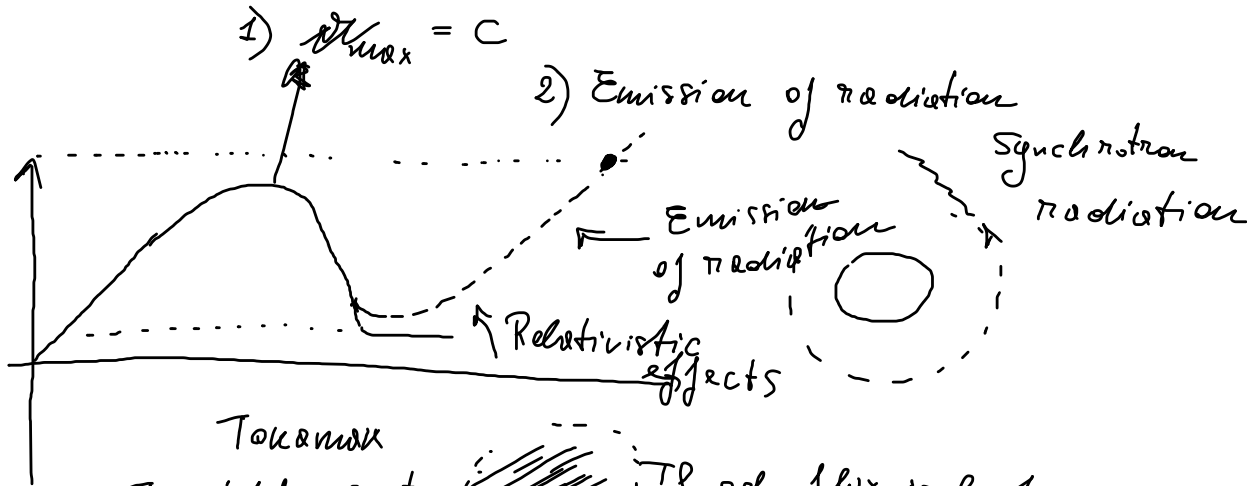 1) v_max = C
2) Emission of radiation
Synchrotron
radiation
Emission
of radiation
Relativistic
effects
Tokamak